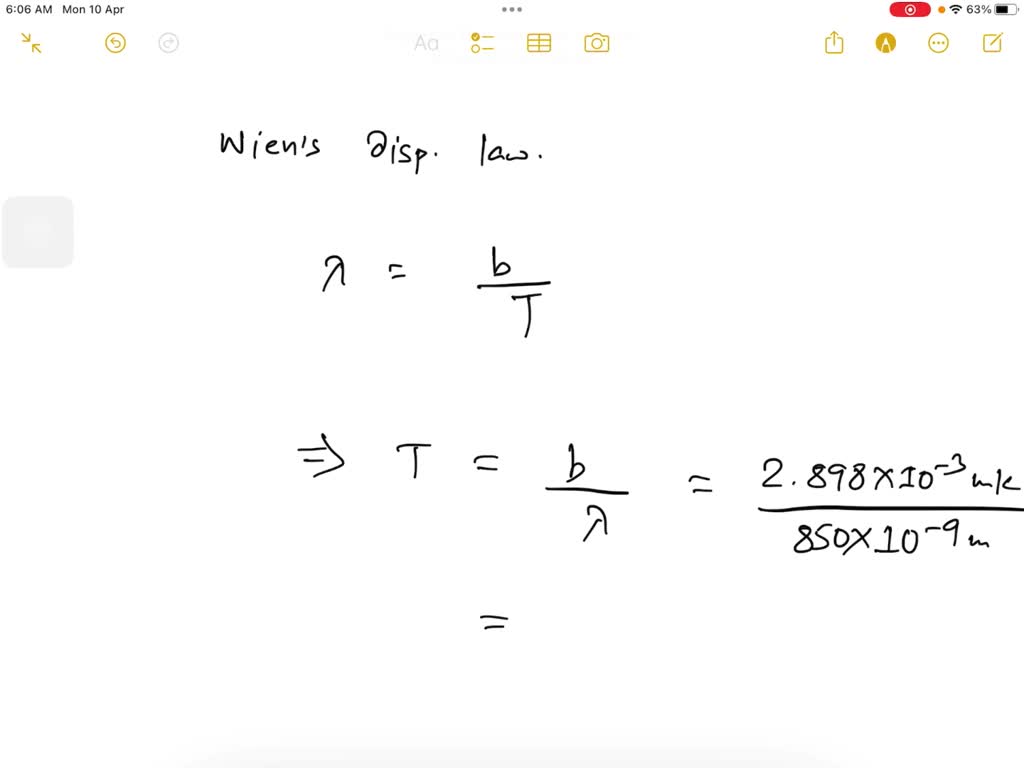 6:06 AM Mon 10 Apr 63%
Aa
Wien's Disp. law.
λ = b / T
⇒ T = b / λ = 2.898×10⁻³ mk / 850×10⁻⁹ m
=